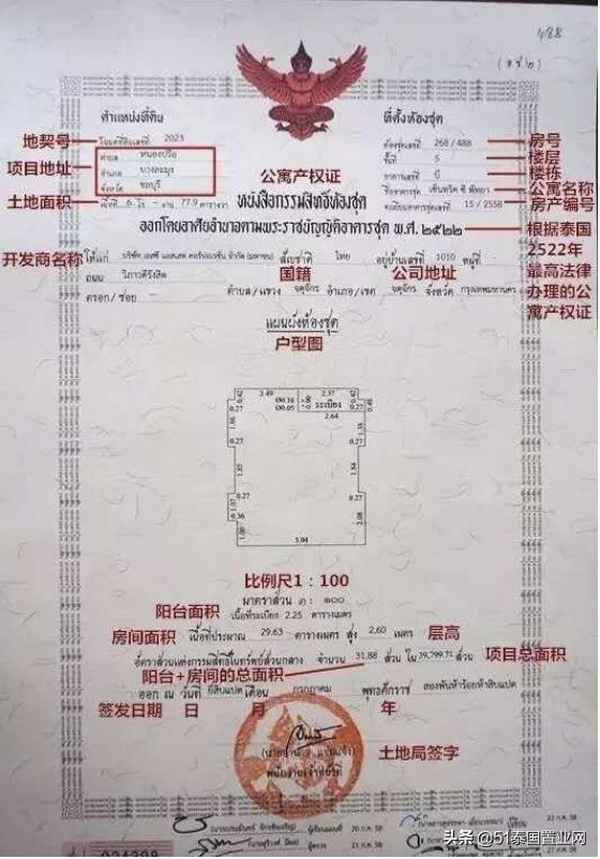 488
(อ.ช.๒)
ตำแหน่งที่ดิน
ที่ตั้งห้องชุด
地契号
โฉนดที่ดินเลขที่ 2023
ห้องชุดเลขที่ 268/488
房号
项目地址
ตำบล หนองปรือ
ชั้นที่ 5
楼层
อำเภอ บางละมุง
อาคารเลขที่ บี
楼栋
จังหวัด ชลบุรี
公寓产权证
ชื่ออาคารชุด เซ็นทริค ซี พัทยา
公寓名称
土地面积
เนื้อที่ 6 ไร่ - งาน 77.9 ตารางวา
หนังสือกรรมสิทธิ์ห้องชุด
ทะเบียนอาคารชุดเลขที่ 15 / 2558
房产编号
ออกโดยอาศัยอำนาจตามพระราชบัญญัติอาคารชุด พ.ศ. ๒๕๒๒
根据泰国
2522年
最高法律
办理的公
寓产权证
开发商名称
ให้แก่ บริษัท เอสซี แอสเสท คอร์ปอเรชั่น จำกัด (มหาชน) สัญชาติ ไทย อยู่บ้านเลขที่ 1010 หมู่ที่ -
ถนน วิภาวดีรังสิต
国籍
公司地址
ตรอก/ซอย - ตำบล/แขวง จตุจักร อำเภอ/เขต จตุจักร จังหวัด กรุงเทพมหานคร
แผนผังห้องชุด
户型图
2.49
2.37
0.42
0.42
0.27
0.27
ระเบียง
2.64
0.27
0.27
0.27
0.27
0.36
5.04
比例尺1：100
มาตราส่วน ๑ : ๑๐๐
阳台面积
เนื้อที่ระเบียง 2.25 ตารางเมตร
房间面积
เนื้อที่ประมาณ 29.63 ตารางเมตร สูง 2.60 เมตร
层高
อัตราส่วนแห่งกรรมสิทธิ์ในทรัพย์ส่วนกลาง จำนวน 31.88 ส่วน ใน 39,799.71 ส่วน
项目总面积
阳台+房间的总面积
ออก ณ วันที่ ยี่สิบแปด เดือน กรกฎาคม พุทธศักราช สองพันห้าร้อยห้าสิบแปด
签发日期 日 月 年
土地局签字
พนักงานเจ้าหน้าที่
头条 @51泰国置业网